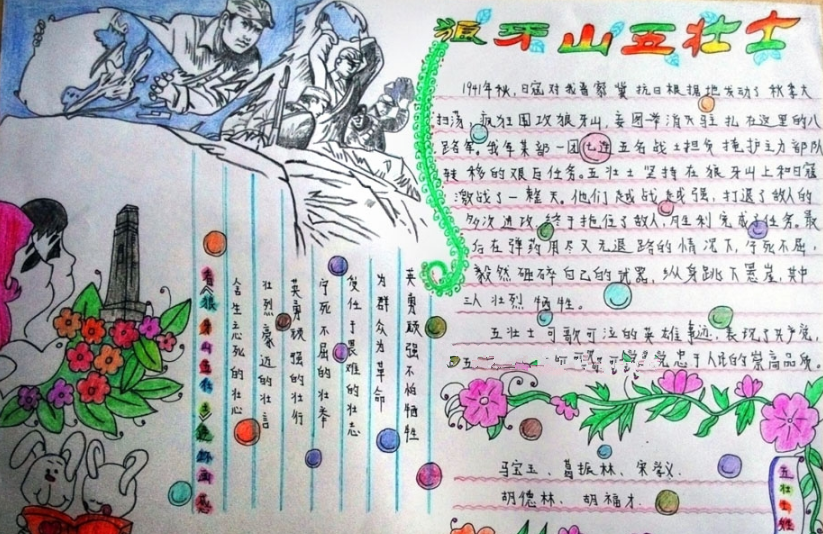 狼牙山五壮士
1941年秋,日寇对我晋察冀抗日根据地发动了秋季大
扫荡,疯狂围攻狼牙山,妄图带消灭驻扎在这里的八
路军。我军某部一团七连五名战士担负掩护主力部队
转移的艰巨任务。五壮士坚持在狼牙山上和日寇
激战了一整天,他们越战越强,打退了敌人的
多次进攻,终于拖住了敌人,胜利完成了任务。最
后在弹药用尽又无退路的情况下,宁死不屈,
毅然砸碎自己的武器,纵身跳下悬崖,其中
三人壮烈牺牲。
五壮士可歌可泣的英雄事迹,表现了共产党,
五 党忠于人民的崇高品质。
英勇顽强不怕牺牲
为群众为革命
受任于畏难的壮志
宁死不屈的壮举
英勇顽强的壮行
壮烈豪迈的壮言
舍生忘死的壮心
看《狼牙山五壮士》绝
马宝玉、葛振林、宋学义、
胡德林、胡福才.
五壮士姓